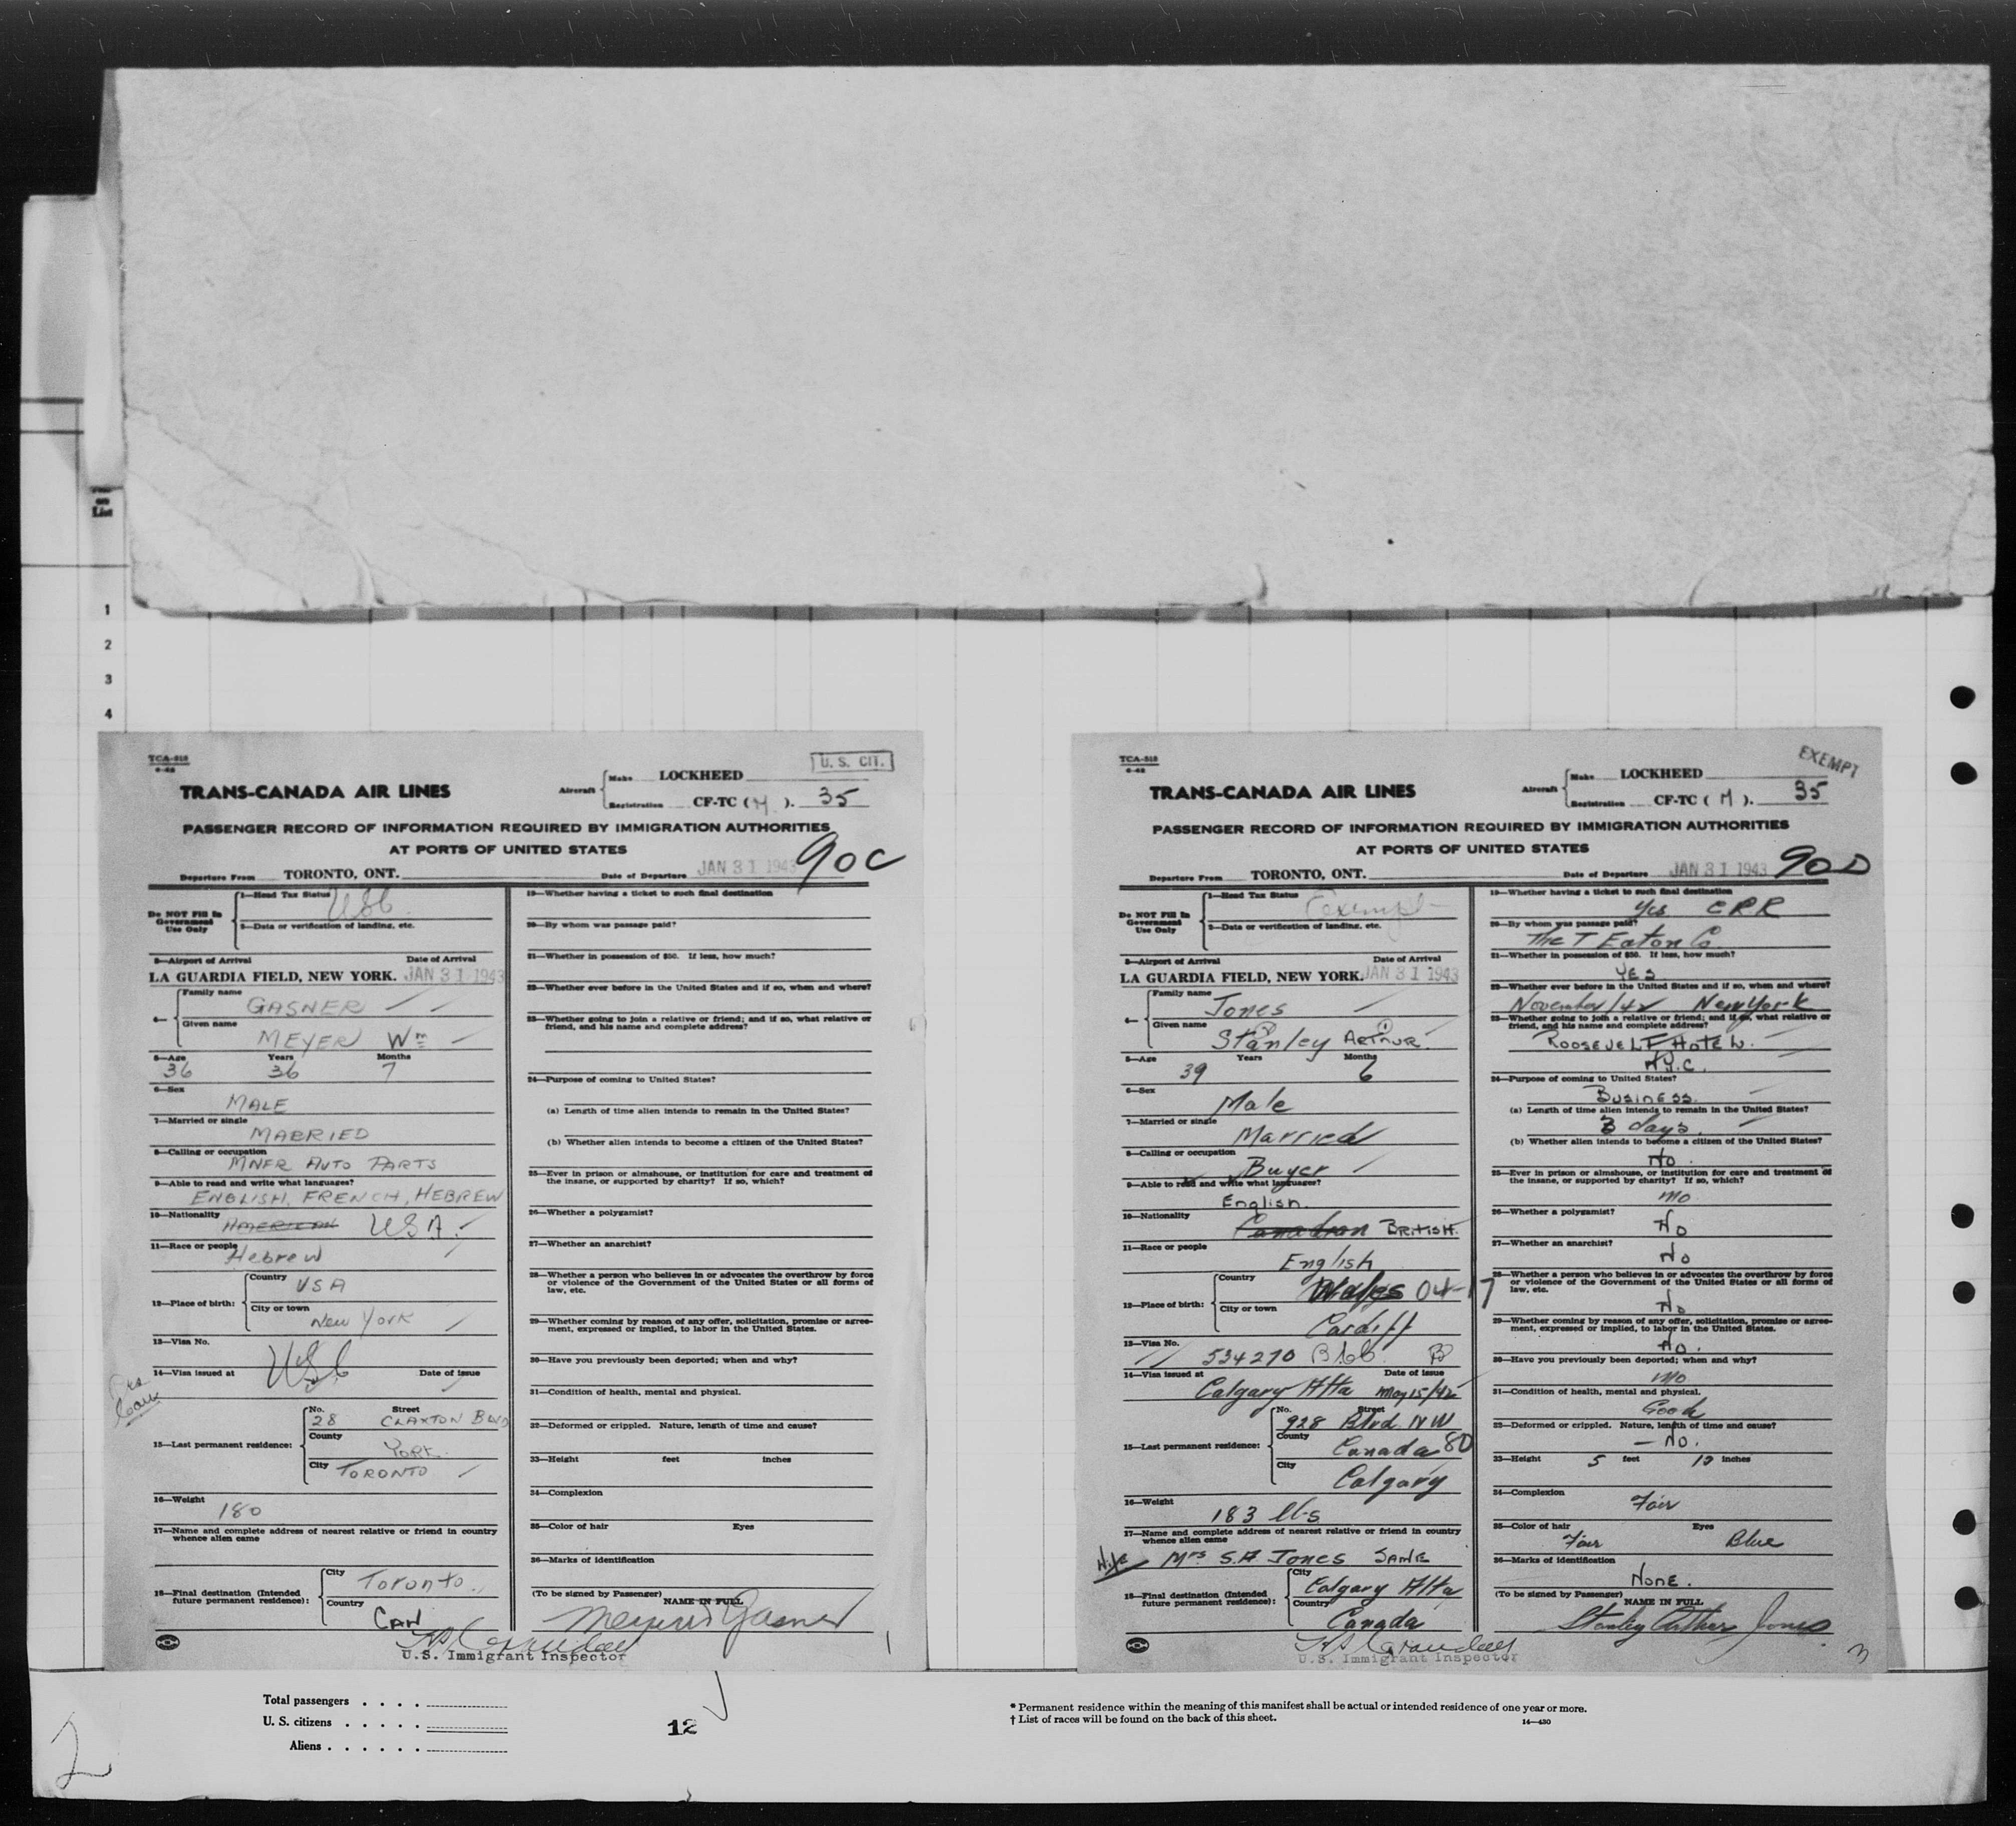 List
1
2
3
4
TCA-318
6-42
U. S. CIT.
TRANS-CANADA AIR LINES
Aircraft
Make LOCKHEED
Registration CF-TC ( M ). 35
PASSENGER RECORD OF INFORMATION REQUIRED BY IMMIGRATION AUTHORITIES
AT PORTS OF UNITED STATES
90C
Departure From TORONTO, ONT. Date of Departure JAN 31 1943
Do NOT Fill In Government Use Only
1—Head Tax Status USC
2—Data or verification of landing, etc.
3—Airport of Arrival Date of Arrival
LA GUARDIA FIELD, NEW YORK. JAN 31 1943
4—
Family name
GASNER
Given name
MEYER Wm
5—Age Years Months
36 36 7
6—Sex
MALE
7—Married or single
MARRIED
8—Calling or occupation
MNFR AUTO PARTS
9—Able to read and write what languages?
ENGLISH, FRENCH, HEBREW
10—Nationality
AMERICAN USA.
11—Race or people
Hebrew
12—Place of birth:
Country
USA
City or town
New York
13—Visa No.
USC
14—Visa issued at Date of issue
15—Last permanent residence:
No. Street
28 CLAXTON BLVD
County
YORK
City TORONTO
16—Weight
180
17—Name and complete address of nearest relative or friend in country
whence alien came
18—Final destination (Intended
future permanent residence):
City
Toronto.
Country
CAN
U.S. Immigrant Inspector
19—Whether having a ticket to such final destination
20—By whom was passage paid?
21—Whether in possession of $50. If less, how much?
22—Whether ever before in the United States and if so, when and where?
23—Whether going to join a relative or friend; and if so, what relative or
friend, and his name and complete address?
24—Purpose of coming to United States?
(a) Length of time alien intends to remain in the United States?
(b) Whether alien intends to become a citizen of the United States?
25—Ever in prison or almshouse, or institution for care and treatment of
the insane, or supported by charity? If so, which?
26—Whether a polygamist?
27—Whether an anarchist?
28—Whether a person who believes in or advocates the overthrow by force
or violence of the Government of the United States or all forms of
law, etc.
29—Whether coming by reason of any offer, solicitation, promise or agree-
ment, expressed or implied, to labor in the United States.
30—Have you previously been deported; when and why?
31—Condition of health, mental and physical.
32—Deformed or crippled. Nature, length of time and cause?
33—Height feet inches
34—Complexion
35—Color of hair Eyes
36—Marks of identification
(To be signed by Passenger) NAME IN FULL
Meyer Wm Gasner
1
TCA-318
6-42
EXEMPT
TRANS-CANADA AIR LINES
Aircraft
Make LOCKHEED
Registration CF-TC ( M ). 35
PASSENGER RECORD OF INFORMATION REQUIRED BY IMMIGRATION AUTHORITIES
AT PORTS OF UNITED STATES
90D
Departure From TORONTO, ONT. Date of Departure JAN 31 1943
Do NOT Fill In Government Use Only
1—Head Tax Status Exempt
2—Data or verification of landing, etc.
3—Airport of Arrival Date of Arrival
LA GUARDIA FIELD, NEW YORK. JAN 31 1943
4—
Family name
Jones
Given name
Stanley ARTHUR.
5—Age Years Months
39 6
6—Sex
Male
7—Married or single
Married
8—Calling or occupation
Buyer
9—Able to read and write what languages?
English.
10—Nationality
Canadian BRITISH.
11—Race or people
English
12—Place of birth:
Country
Wales 04-17
City or town
Cardiff
13—Visa No.
534270
14—Visa issued at Date of issue
Calgary Alta May 15/42
15—Last permanent residence:
No. Street
928 Blvd. NW
County
Canada 80
City
Calgary
16—Weight
183 lbs
17—Name and complete address of nearest relative or friend in country
whence alien came
Wife Mrs S.A Jones SAME
18—Final destination (Intended
future permanent residence):
City
Calgary Alta
Country
Canada
U.S. Immigrant Inspector
19—Whether having a ticket to such final destination
Yes CPR
20—By whom was passage paid?
The T Eaton Co
21—Whether in possession of $50. If less, how much?
YES
22—Whether ever before in the United States and if so, when and where?
November/42 New York
23—Whether going to join a relative or friend; and if so, what relative or
friend, and his name and complete address?
ROOSEVELT HOTEL.
N.Y.C.
24—Purpose of coming to United States?
BUSINESS.
(a) Length of time alien intends to remain in the United States?
3 days.
(b) Whether alien intends to become a citizen of the United States?
No.
25—Ever in prison or almshouse, or institution for care and treatment of
the insane, or supported by charity? If so, which?
no
26—Whether a polygamist?
No
27—Whether an anarchist?
No
28—Whether a person who believes in or advocates the overthrow by force
or violence of the Government of the United States or all forms of
law, etc.
No
29—Whether coming by reason of any offer, solicitation, promise or agree-
ment, expressed or implied, to labor in the United States.
No.
30—Have you previously been deported; when and why?
no
31—Condition of health, mental and physical.
Good
32—Deformed or crippled. Nature, length of time and cause?
— No.
33—Height 5 feet 10 inches
34—Complexion
Fair
35—Color of hair Eyes
Fair Blue
36—Marks of identification
NONE.
(To be signed by Passenger) NAME IN FULL
Stanley Arthur Jones
3
Total passengers . . . .
U. S. citizens . . . . .
Aliens . . . . . .
2
12
* Permanent residence within the meaning of this manifest shall be actual or intended residence of one year or more.
† List of races will be found on the back of this sheet.
14—430